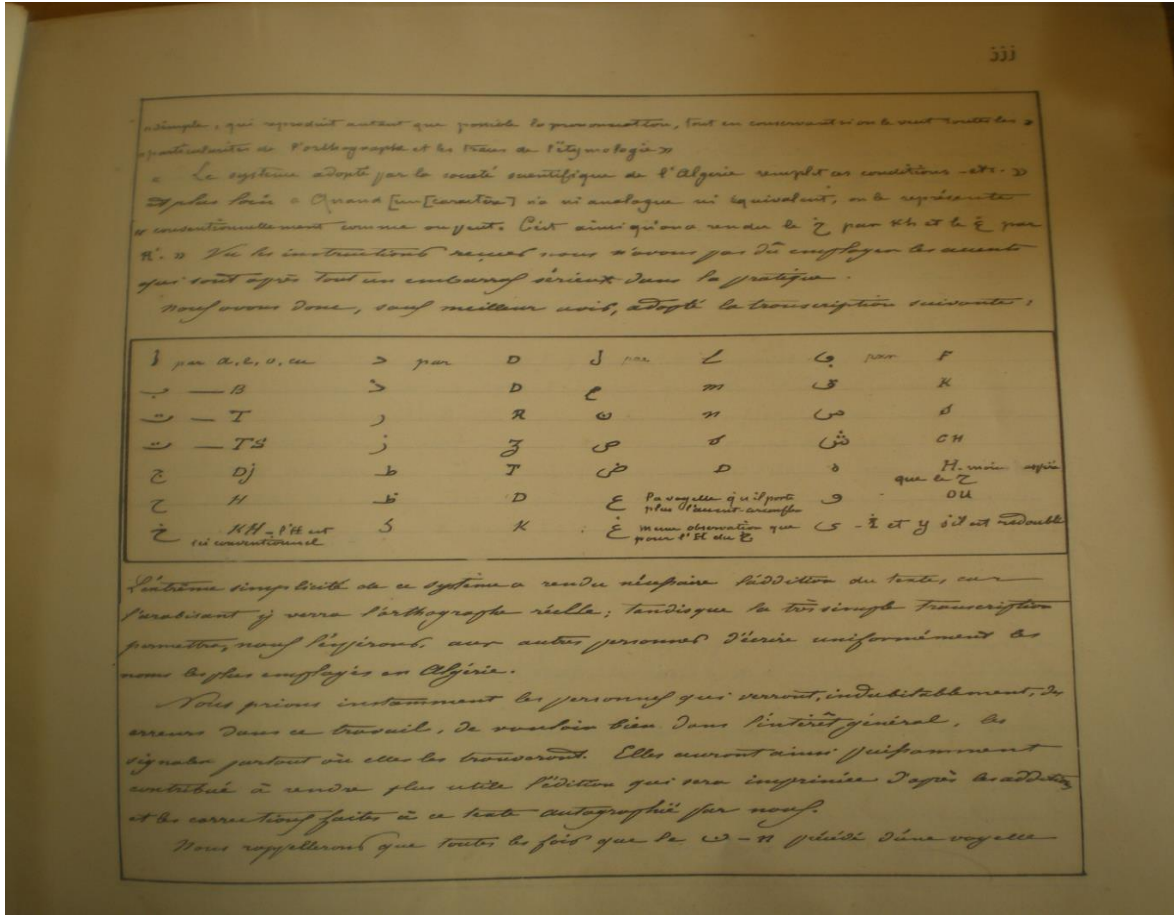 iii
« simple, qui reproduit autant que possible la prononciation, tout en conservant si on le veut toutes les »
« particularités de l'orthographe et les traces de l'étymologie »
« Le système adopté par la société scientifique de l'Algérie remplit ces conditions - etc. »
et plus loin « Quand [un [caractère] n'a ni analogue ni équivalent, on le représente
« conventionnellement comme on peut. C'est ainsi qu'on a rendu le خ par Kh et le غ par
R'. » Vu les instructions reçues nous n'avons pas dû employer les accents
qui sont après tout un embarras sérieux dans la pratique.
Nous avons donc, sauf meilleur avis, adopté la transcription suivante :
ا par a, e, o, eu د par D ل par L ف par F
ب — B ذ D م m ق K
ت — T ر R ن n س
ث — TS ز Z ص ش CH
ج Dj ط T ض D ه H. moins aspiré que le ح
ح H ظ D ع la voyelle qu'il porte plus l'accent circonflexe و OU
خ KH - l'H est ici conventionnel ك K غ même observation que pour l'H du خ ى - ï et y s'il est redoublé
L'extrême simplicité de ce système a rendu nécessaire l'addition du texte, car
l'arabisant y verra l'orthographe réelle ; tandis que la très simple transcription
permettra, nous l'espérons, aux autres personnes d'écrire uniformément les
noms les plus employés en Algérie.
Nous prions instamment les personnes qui verront, indubitablement, des
erreurs dans ce travail, de vouloir bien dans l'intérêt général, les
signaler partout où elles les trouveront. Elles auront ainsi puissamment
contribué à rendre plus utile l'édition qui sera imprimée d'après les additions
et les corrections faites à ce texte autographié par nous.
Nous rappellerons que toutes les fois que le ن - n précédé d'une voyelle